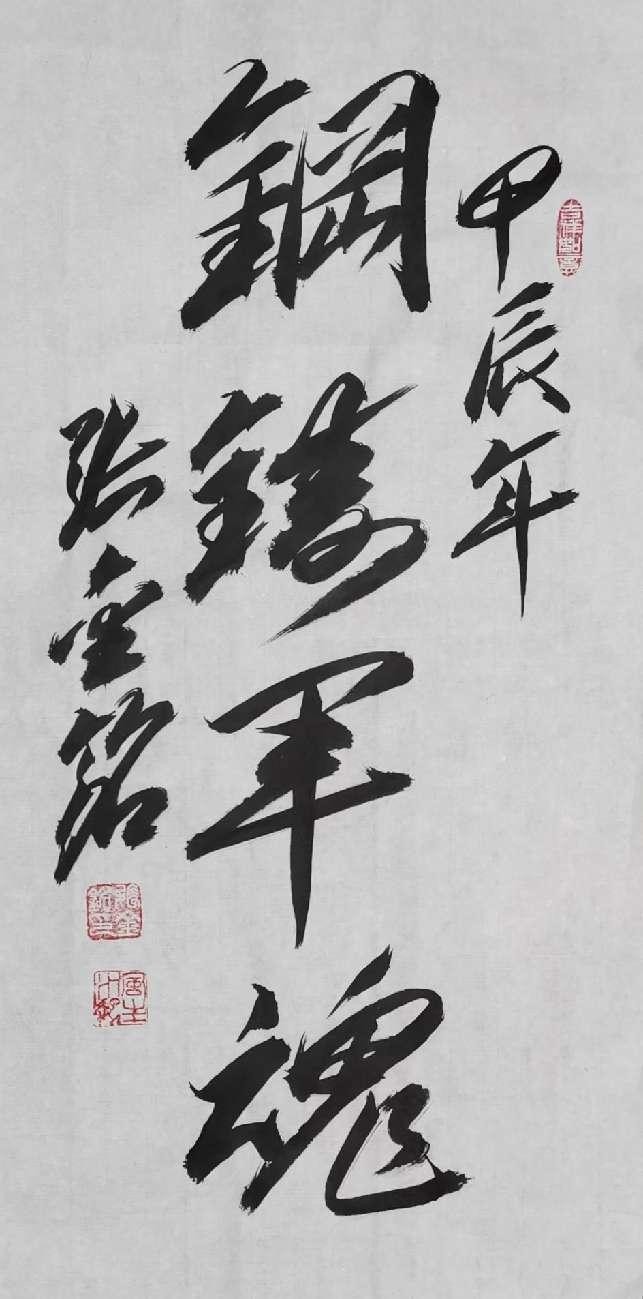 甲辰年
鋼鑄軍魂
張金銘